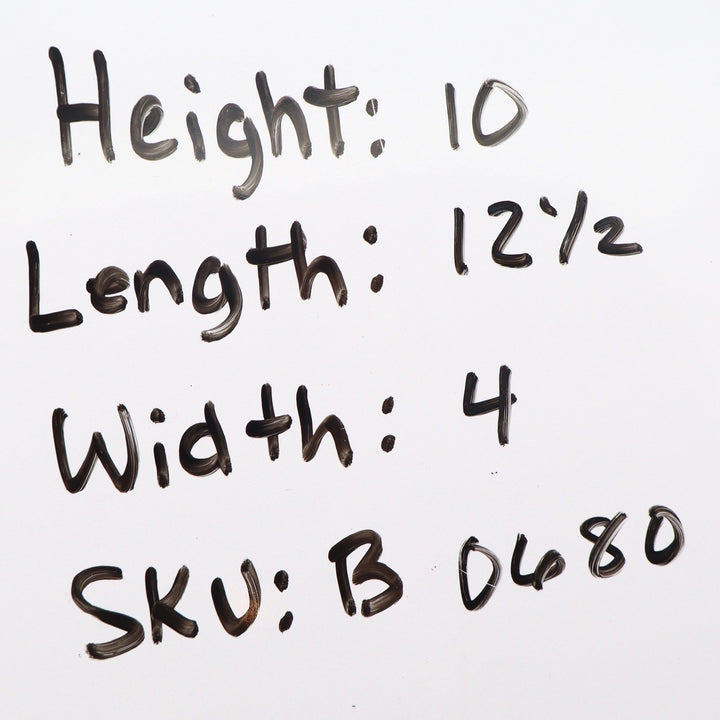 Height: 10
Length: 12 1/2
Width: 4
SKU: B 0680